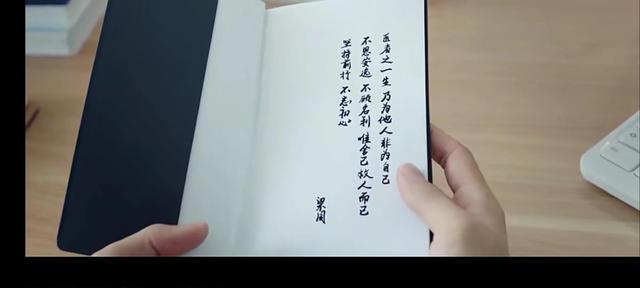 医者之一生 乃为他人 非为自己
不思安逸 不顾名利 唯舍己救人而已
坚持前行 不忘初心
梁阅